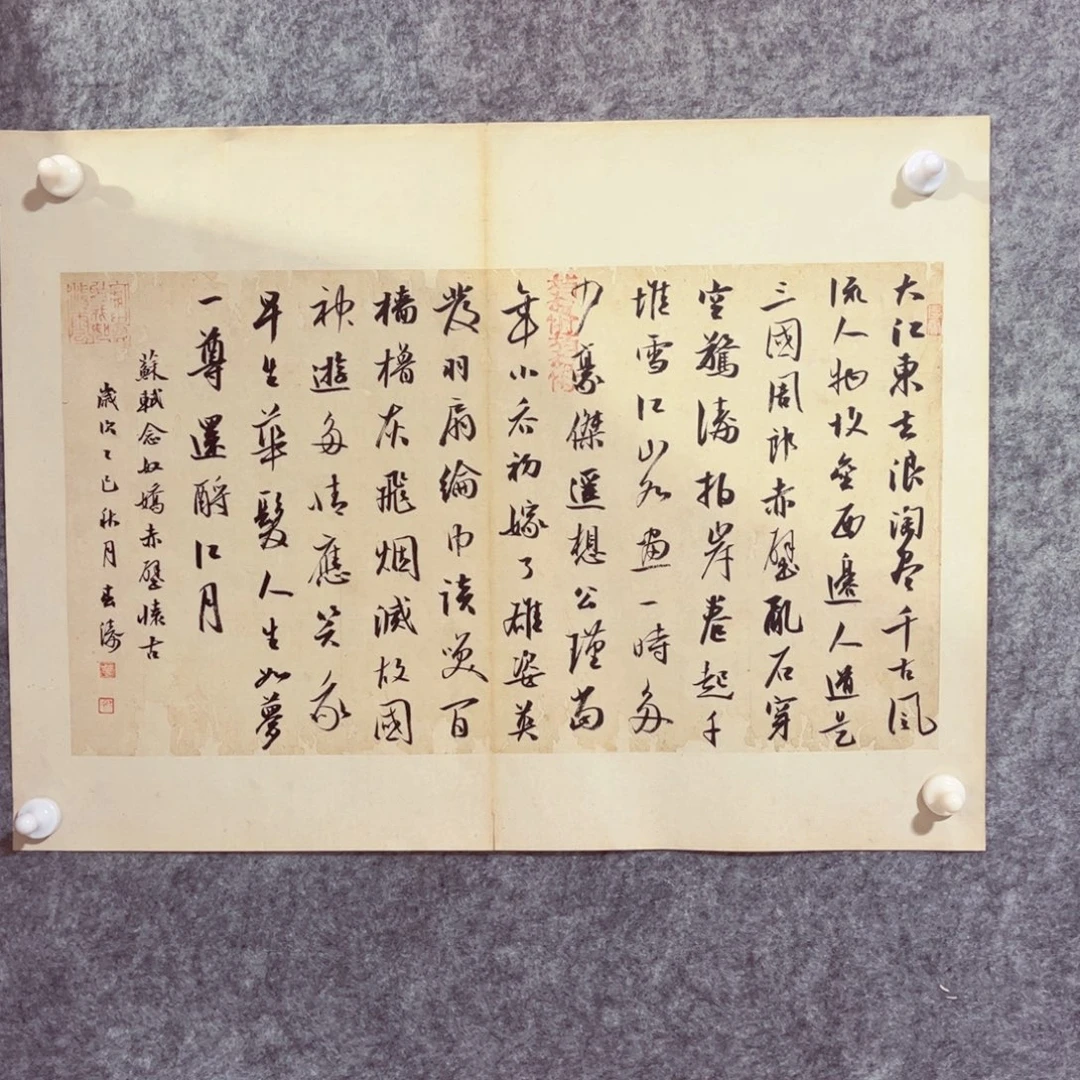 大江東去浪淘尽千古風
流人物故壘西邊人道是
三國周郎赤壁亂石穿
空驚濤拍岸卷起千
堆雪江山如畫一時多
少豪傑遥想公瑾當
年小喬初嫁了雄姿英
發羽扇綸巾談笑間
檣櫓灰飛烟滅故國
神遊多情應笑我
早生華髮人生如夢
一尊還酹江月
蘇軾念奴嬌赤壁懷古
歲次乙巳秋月